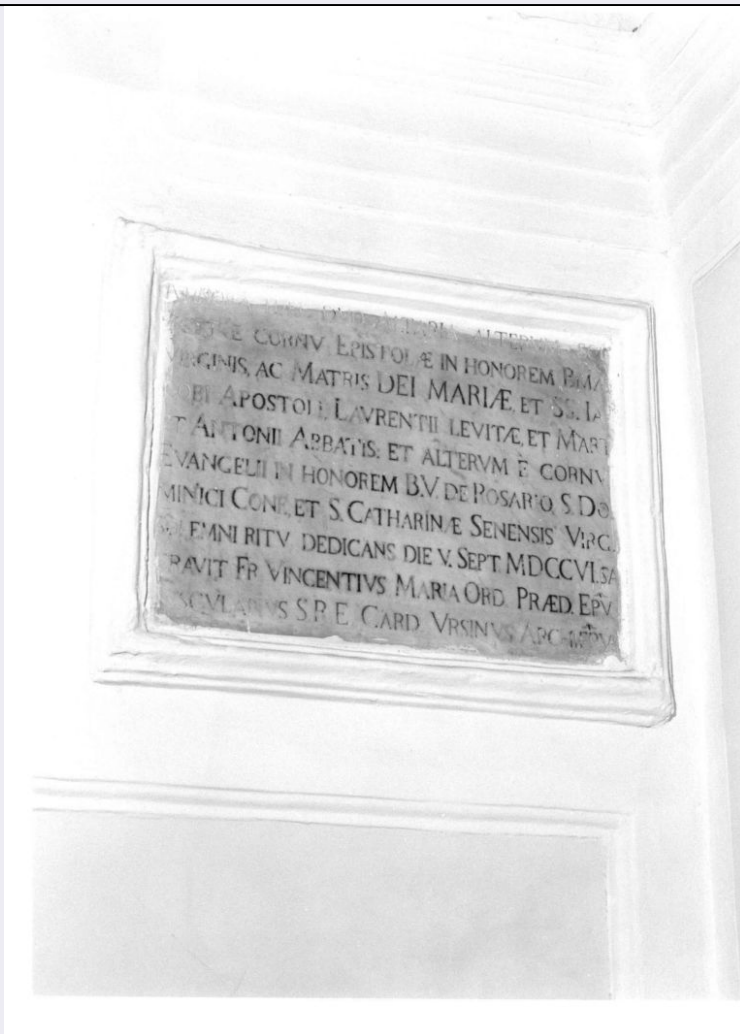 ALTARIA ALTERVM
E CORNV EPISTOLÆ IN HONOREM B. MA
GINIS, AC MATRIS DEI MARIÆ, ET SS. IA
BI APOSTOLI, LAVRENTII LEVITÆ, ET MART
T ANTONII ABBATIS: ET ALTERVM È CORNV
EVANGELII IN HONOREM B.V. DE ROSARIO, S. DO
MINICI CONF. ET S. CATHARINÆ SENENSIS VIRG.
EMNI RITV DEDICANS DIE V. SEPT. MDCCVI. SA
RAVIT FR. VINCENTIVS MARIA ORD. PRÆD. EPV
SCVLANVS S.R.E. CARD. VRSINVS ARC